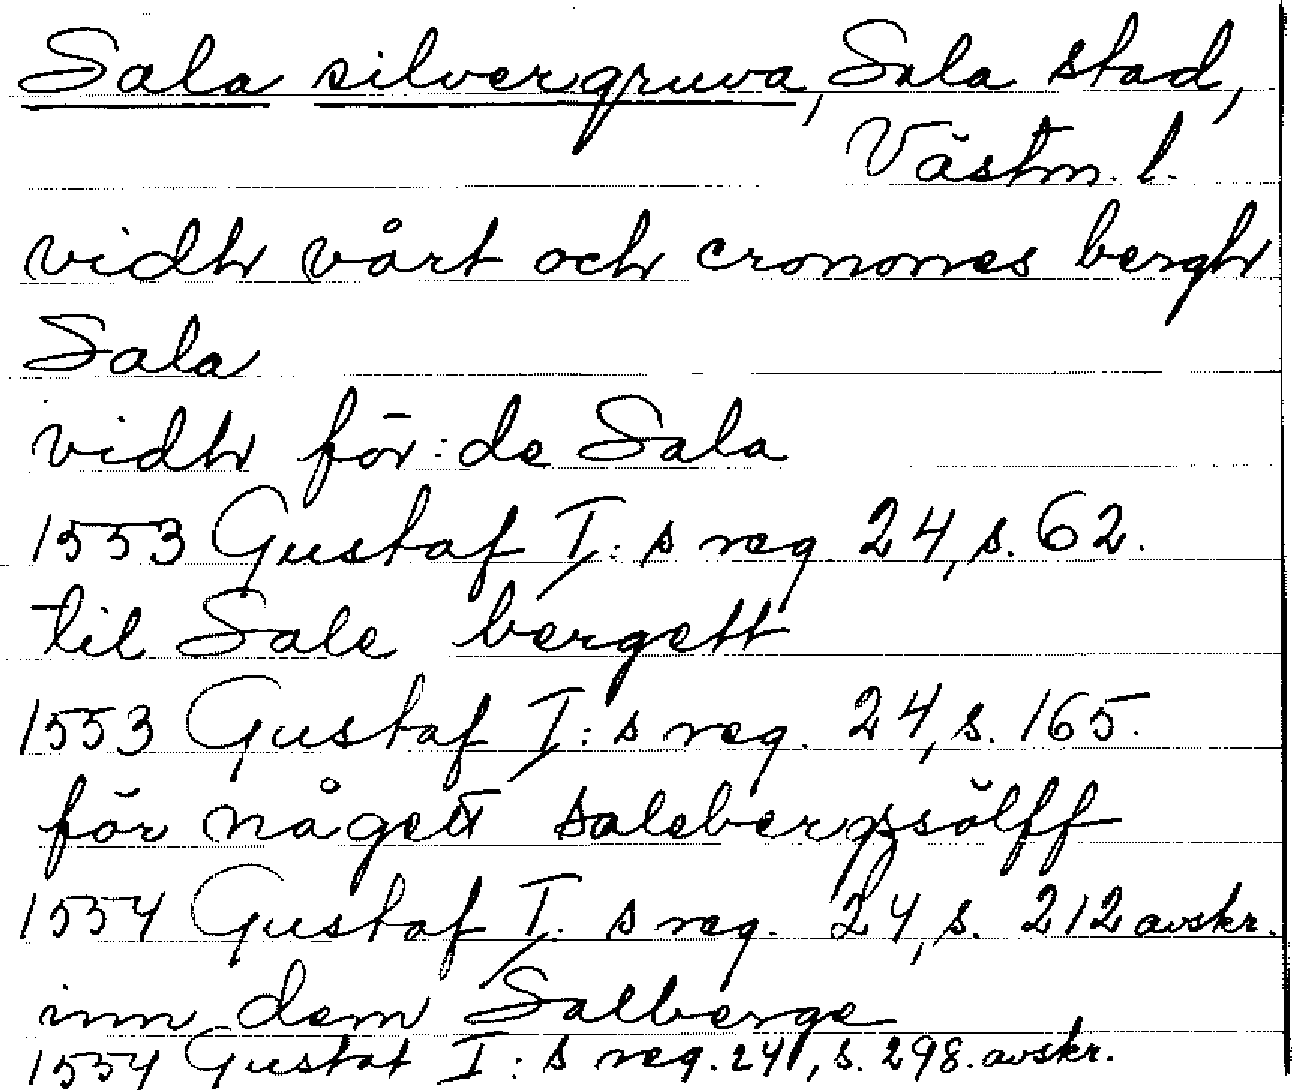 Sala silvergruva, Sala stad,
Västm. l.
vidh vårt och cronones bergh
Sala
vidh för:de Sala
1553 Gustaf I:s reg 24, s. 62.
til Sale bergett
1553 Gustaf I:s reg. 24, s. 165.
för någett salebergssölff
1554 Gustaf I:s reg. 24, s. 212 avskr.
inn dem Salberge
1554 Gustaf I:s reg. 24, s. 298. avskr.